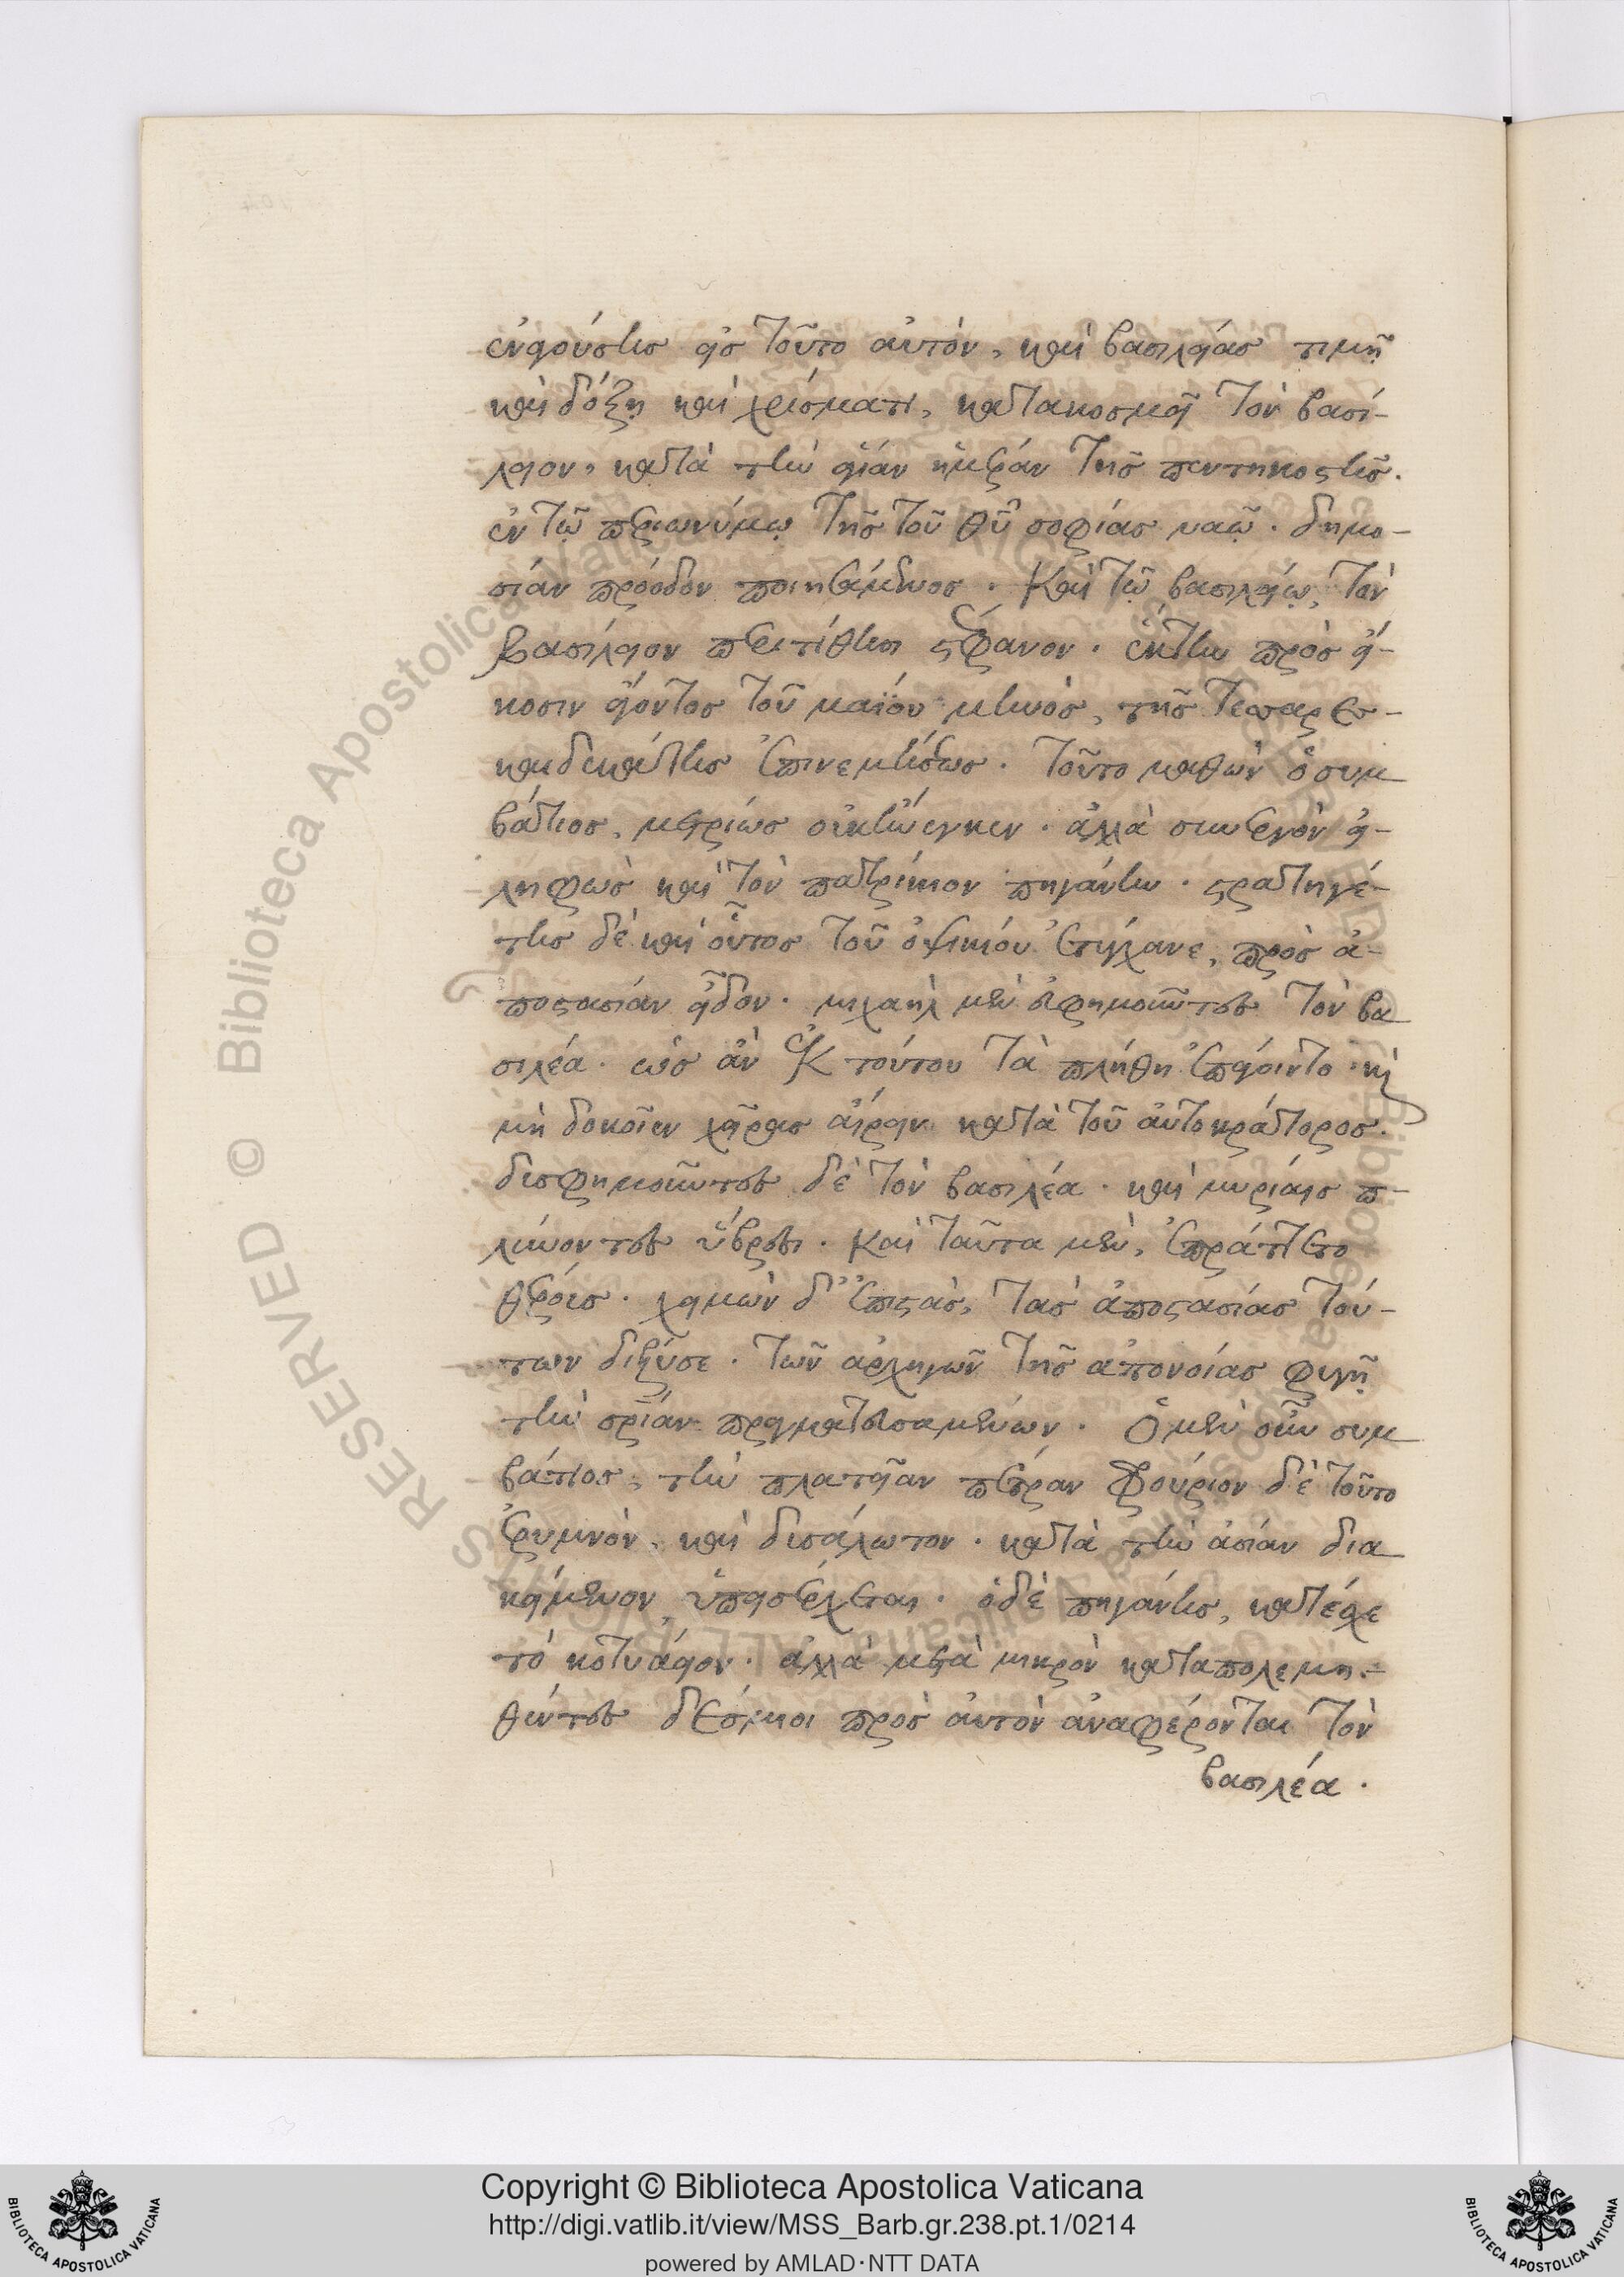 ἐναγούσης εἰς τοῦτο αὐτόν, καὶ βασιλείας τιμῇ
καὶ δόξῃ καὶ χρίσματι, κατακοσμεῖ τὸν βασί-
λειον, κατὰ τὴν ἁγίαν ἡμέραν τῆς πεντηκοστῆς.
ἐν τῷ περιωνύμῳ τῆς τοῦ θῦ σοφίας ναῷ. δημο-
σίαν πρόοδον ποιησάμενος. Καὶ τῷ βασιλείῳ, τὸν
βασίλειον περιτίθησι στέφανον. ἕκτην πρὸς εἴ-
κοσιν ἄγοντος τοῦ μαΐου μηνὸς, τῆς τεσσαρεσ-
καιδεκάτης ἐπινεμήσεως. τοῦτο μαθὼν ὁ συμ
βάτιος, μετρίως οὐκ ἤνεγκεν. ἀλλὰ συνεργὸν εἰ-
ληφὼς καὶ τὸν πατρίκιον πηγάνην. στρατηγέ-
της δὲ καὶ οὗτος τοῦ ὀψικίου ἐτύγχανε, πρὸς ἀ-
ποστασίαν εἶδον. μιχαὴλ μὲν εὐφημοῦντες τὸν βα
σιλέα. ὡς ἂν ἐκ τούτου τὰ πλήθη ἐπάγοιντο. καὶ
μὴ δοκοῖεν χεῖρας αἴρειν κατὰ τοῦ αὐτοκράτορος.
δυσφημοῦντες δὲ τὸν βασιλέα. καὶ μυρίαις π-
λύνοντες ὕβρεσι. Καὶ ταῦτα μὲν, ἐπράττετο
θέρους. χειμὼν δ' ἐπιστὰς, τὰς ἀποστασίας τού-
των διέλυσε. τῶν ἀρχηγῶν τῆς ἀπονοίας φυγῇ
τὴν σρίαν πραγματευσαμένων. Ὁ μὲν οὖν συμ
βάτιος, τὴν πλατεῖαν πέτραν φρούριον δὲ τοῦτο
ἐρυμνὸν, καὶ δυσάλωτον. κατὰ τὴν ἀσίαν δια
κείμενον, ὑπεισέρχεται. ὁ δὲ πηγάνης, κατέσχε
τὸ κοτυάειον. ἀλλὰ μετὰ μικρὸν καταπολεμη-
θέντες δέσμιοι πρὸς αὐτὸν ἀναφέρονται τὸν
βασιλέα.
Copyright © Biblioteca Apostolica Vaticana
http://digi.vatlib.it/view/MSS_Barb.gr.238.pt.1/0214
powered by AMLAD·NTT DATA